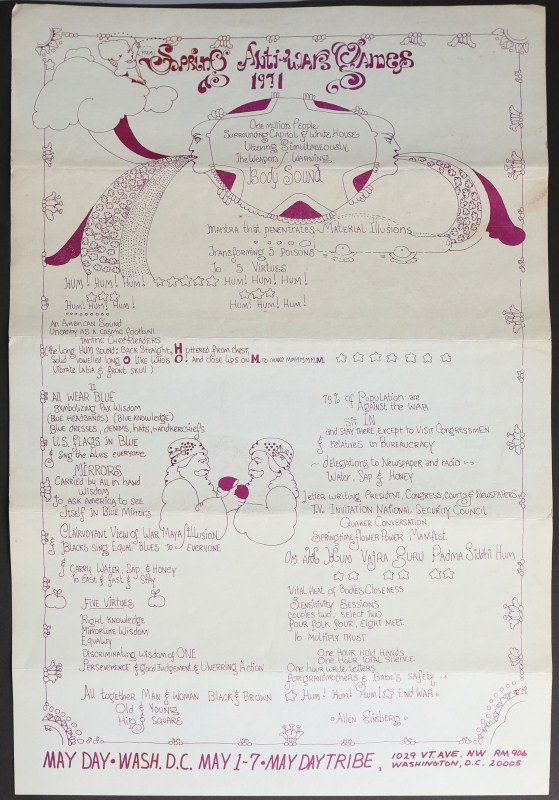 Spring Anti-War Games
1971
One million People
Surrounding Capitol & White House
Uttering Simultaneously
The Weapon / Warning
Body Sound
Mantra that penentrates Material Illusions
Transforming 5 Poisons
To 5 Virtues
Hum! Hum! Hum! Hum! Hum! Hum!
Hum! Hum! Hum! Hum! Hum! Hum!
An American Sound
as a cosmic football
Tantric Cheerleaders
(the long HUM sound: Back Straight, H uttered from chest,
voweled long O like who's O! and close lips on M to make MMMMMM
Vibrate Labia & front skull)
II
All Wear Blue
Symbolizing Pax Wisdom
(Blue Headbands) (Blue Knowledge)
Blue dresses, denims, hats, handkerchiefs
U.S. Flags in Blue
& Sing the blues everyone
Mirrors
Carried by all in hand
Wisdom
to ask America to see
itself in Blue Mirrors
Clairvoyant View of War Maya Illusion
& Blacks sing Equal Blues to everyone
& Carry Water, Sap & Honey
to Eat & Fast & Stay
Five Virtues
Right Knowledge
Mirrorlike Wisdom
Equality
Discriminating Wisdom of ONE
Perseverence & Good Judgement & Unerring Action
All together Man & Woman Black & Brown
Old & Young
Hip & Square
75% of Population are
Against the War
Sit IN
and stay there, except to visit Congressmen
& relatives in Bureaucracy
~ delegations to Newspaper and radio ~
Water, Sap & Honey
Letter writing President, Congress, Courts & Newspapers
T.V. Invitation National Security Council
Quaker Conversation
Springtime Flower Power Manifest
Om Ah Hum Vajra Guru Padma Siddhi Hum
Vital Heat of Bodies Closeness
Sensitivity Sessions
Couples two, select two
Four folk four, eight meet
To multiply trust
One hour hold Hands
One hour total Silence
One hour write letters
For Grandmothers & Babe's Safety
Hum! Hum! Hum! End War
~ Allen Ginsberg ~
MAY DAY • WASH. D.C. MAY 1-7 • MAY DAY TRIBE, 1029 VT. AVE. NW RM 906
WASHINGTON, D.C. 20005